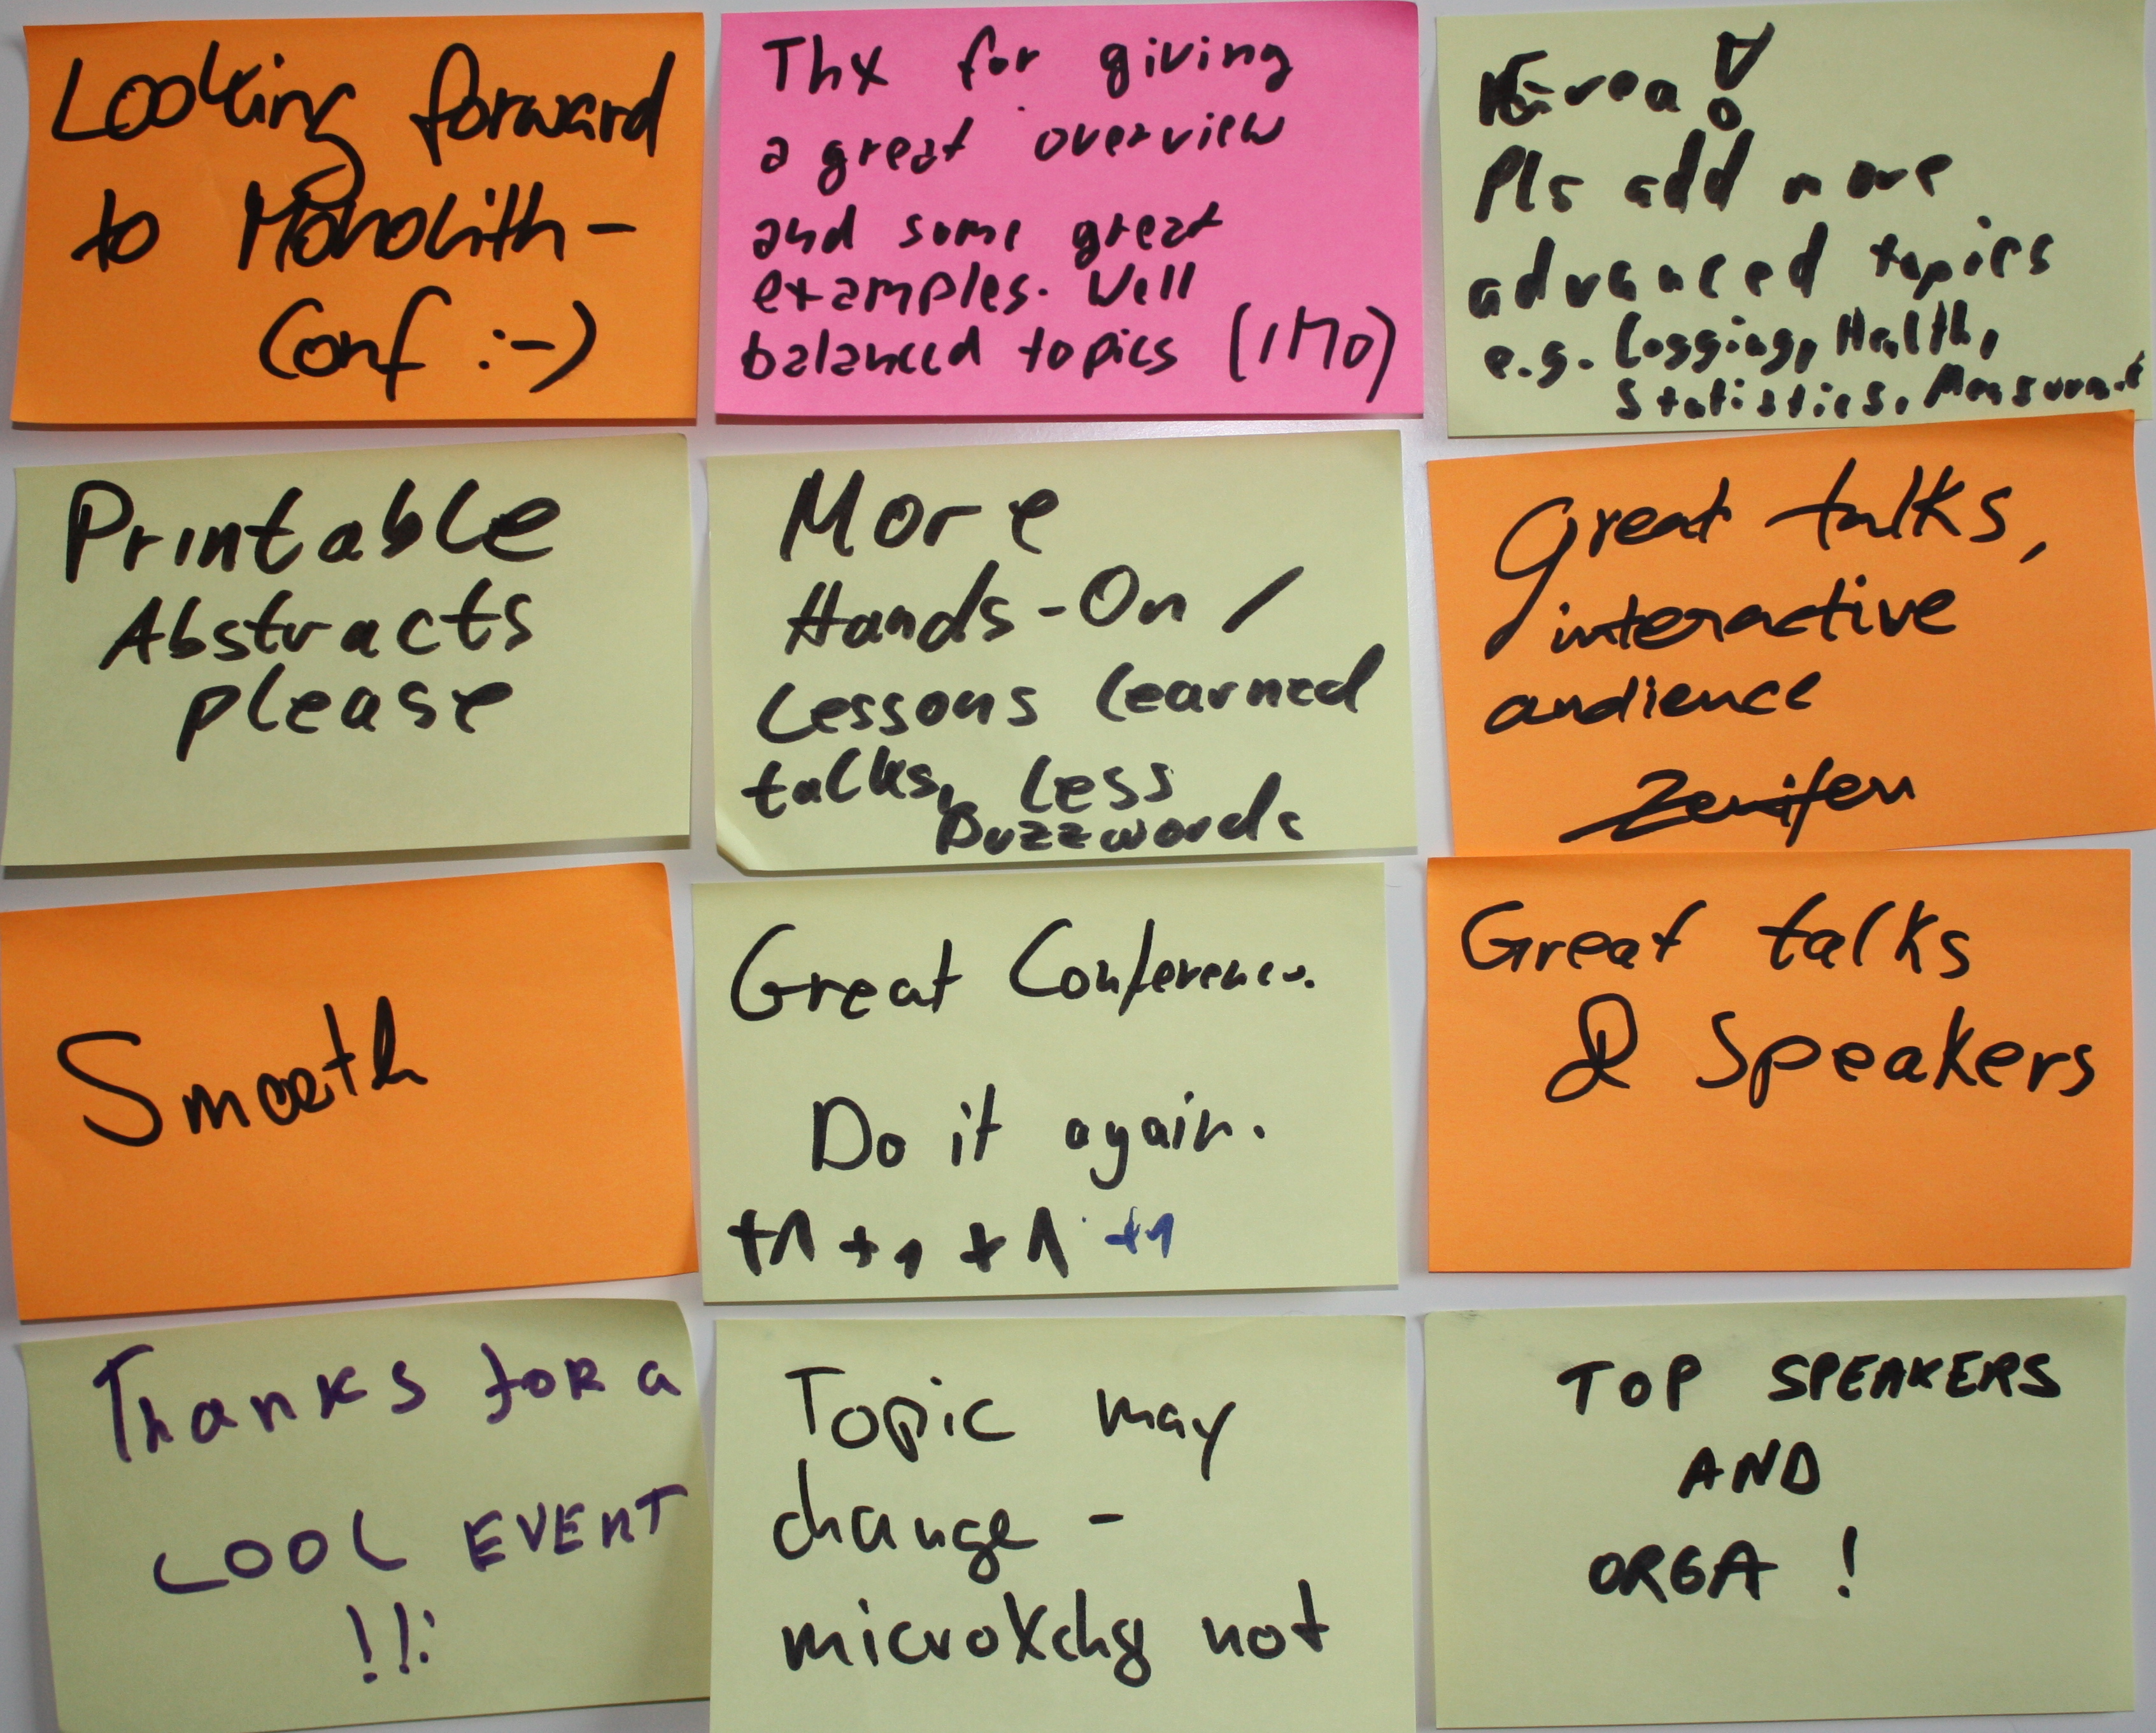 Looking forward
to Monolith-
Conf :-)
Thx for giving
a great overview
and some great
examples. Well
balanced topics (IMO)
Pls add more
advanced topics
e.g. Logging, Health,
Statistics,
Printable
Abstracts
please
More
Hands-On /
Lessons learned
talks, Less
Buzzwords
Great talks,
interactive
audience
Smooth
Great Conference.
Do it again.
+1 +1 +1 +1
Great talks
& Speakers
Thanks for a
COOL EVENT
!!!
Topic may
change -
microXchg not
TOP SPEAKERS
AND
ORGA !